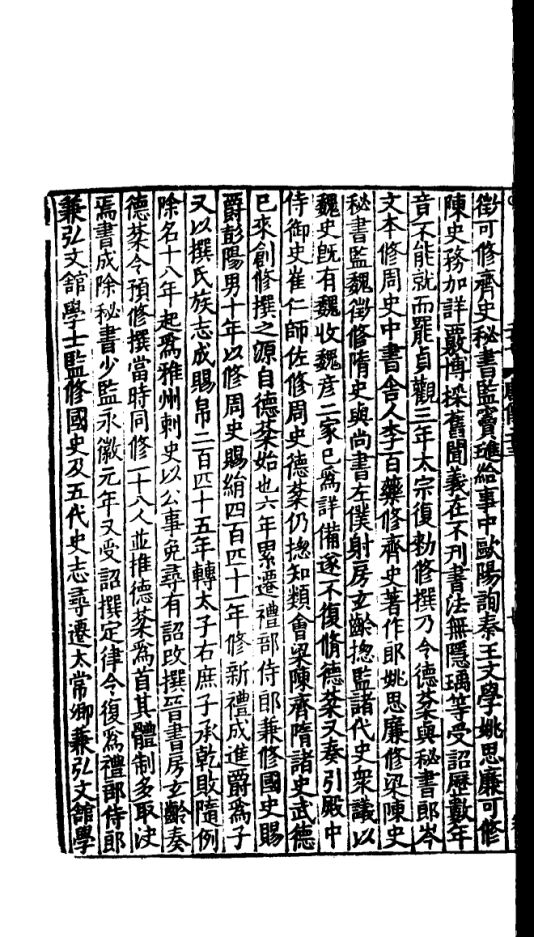 徵可修齊史秘書監竇璡給事中歐陽詢秦王文學姚思廉可修
陳史務加詳覈博採舊聞義在不刊書法無隱瑀等受詔歷數年
竟不能就而罷貞觀三年太宗復勑修撰乃令德棻與秘書郎岑
文本修周史中書舍人李百藥修齊史著作郎姚思廉修梁陳史
秘書監魏徵修隋史與尚書左僕射房玄齡揔監諸代史衆議以
魏史旣有魏收魏彦二家已爲詳備遂不復脩德棻又奏引殿中
侍御史崔仁師佐修周史德棻仍揔知類會梁陳齊隋諸史武德
已來創修撰之源自德棻始也六年累遷禮部侍郎兼修國史賜
爵彭陽男十年以修周史賜絹四百匹十一年修新禮成進爵爲子
又以撰氏族志成賜帛二百匹十五年轉太子右庶子承乾敗隨例
除名十八年起爲雅州刺史以公事免尋有詔改撰晉書房玄齡奏
德棻令預修撰當時同修一十八人並推德棻爲首其體制多取決
焉書成除秘書少監永徽元年又受詔撰定律令復爲禮部侍郎
兼弘文館學士監修國史及五代史志尋遷太常卿兼弘文館學